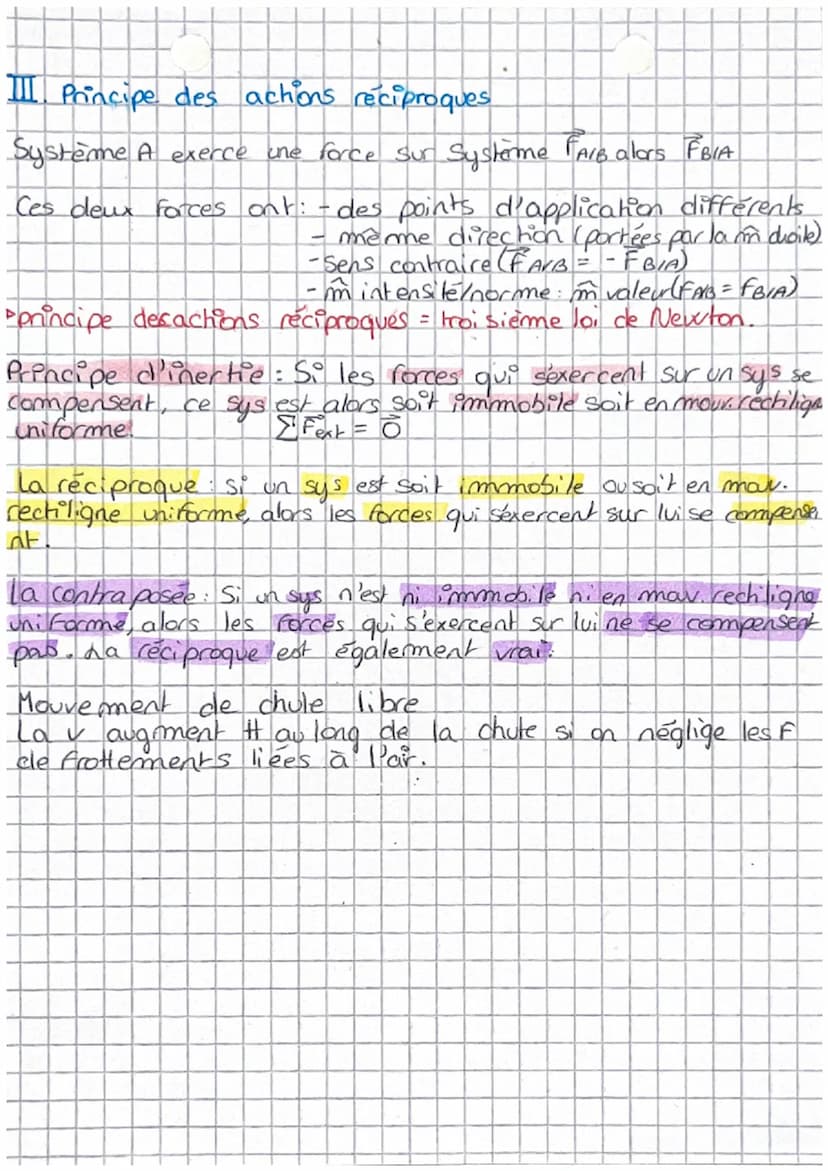 III. Principe des actions réciproques
Système A exerce une force sur Système F⃗A/B alors F⃗B/A
Ces deux forces ont: - des points d'application différents
- même direction (portées par la m̂ droite)
- sens contraire (F⃗A/B = - F⃗B/A)
- m̂ intensité/norme: m̂ valeur (FA/B = FB/A)
▹principe des actions réciproques = troisième loi de Newton.
Principe d'inertie : Si les forces qui s'exercent sur un sys se
compensent, ce sys est alors soit immobile soit en mouv. rectilign
uniforme. ΣF⃗ext = 0⃗
La réciproque : si un sys est soit immobile ou soit en mouv.
rectiligne uniforme, alors les forces qui s'exercent sur lui se compense
nt.
La contraposée : Si un sys n'est ni immobile ni en mouv. rectiligne
uniforme, alors les forces qui s'exercent sur lui ne se compensent
pas. La réciproque est également vrai.
Mouvement de chute libre
La v augment tt au long de la chute si on néglige les F
de frottements liées à l'air.